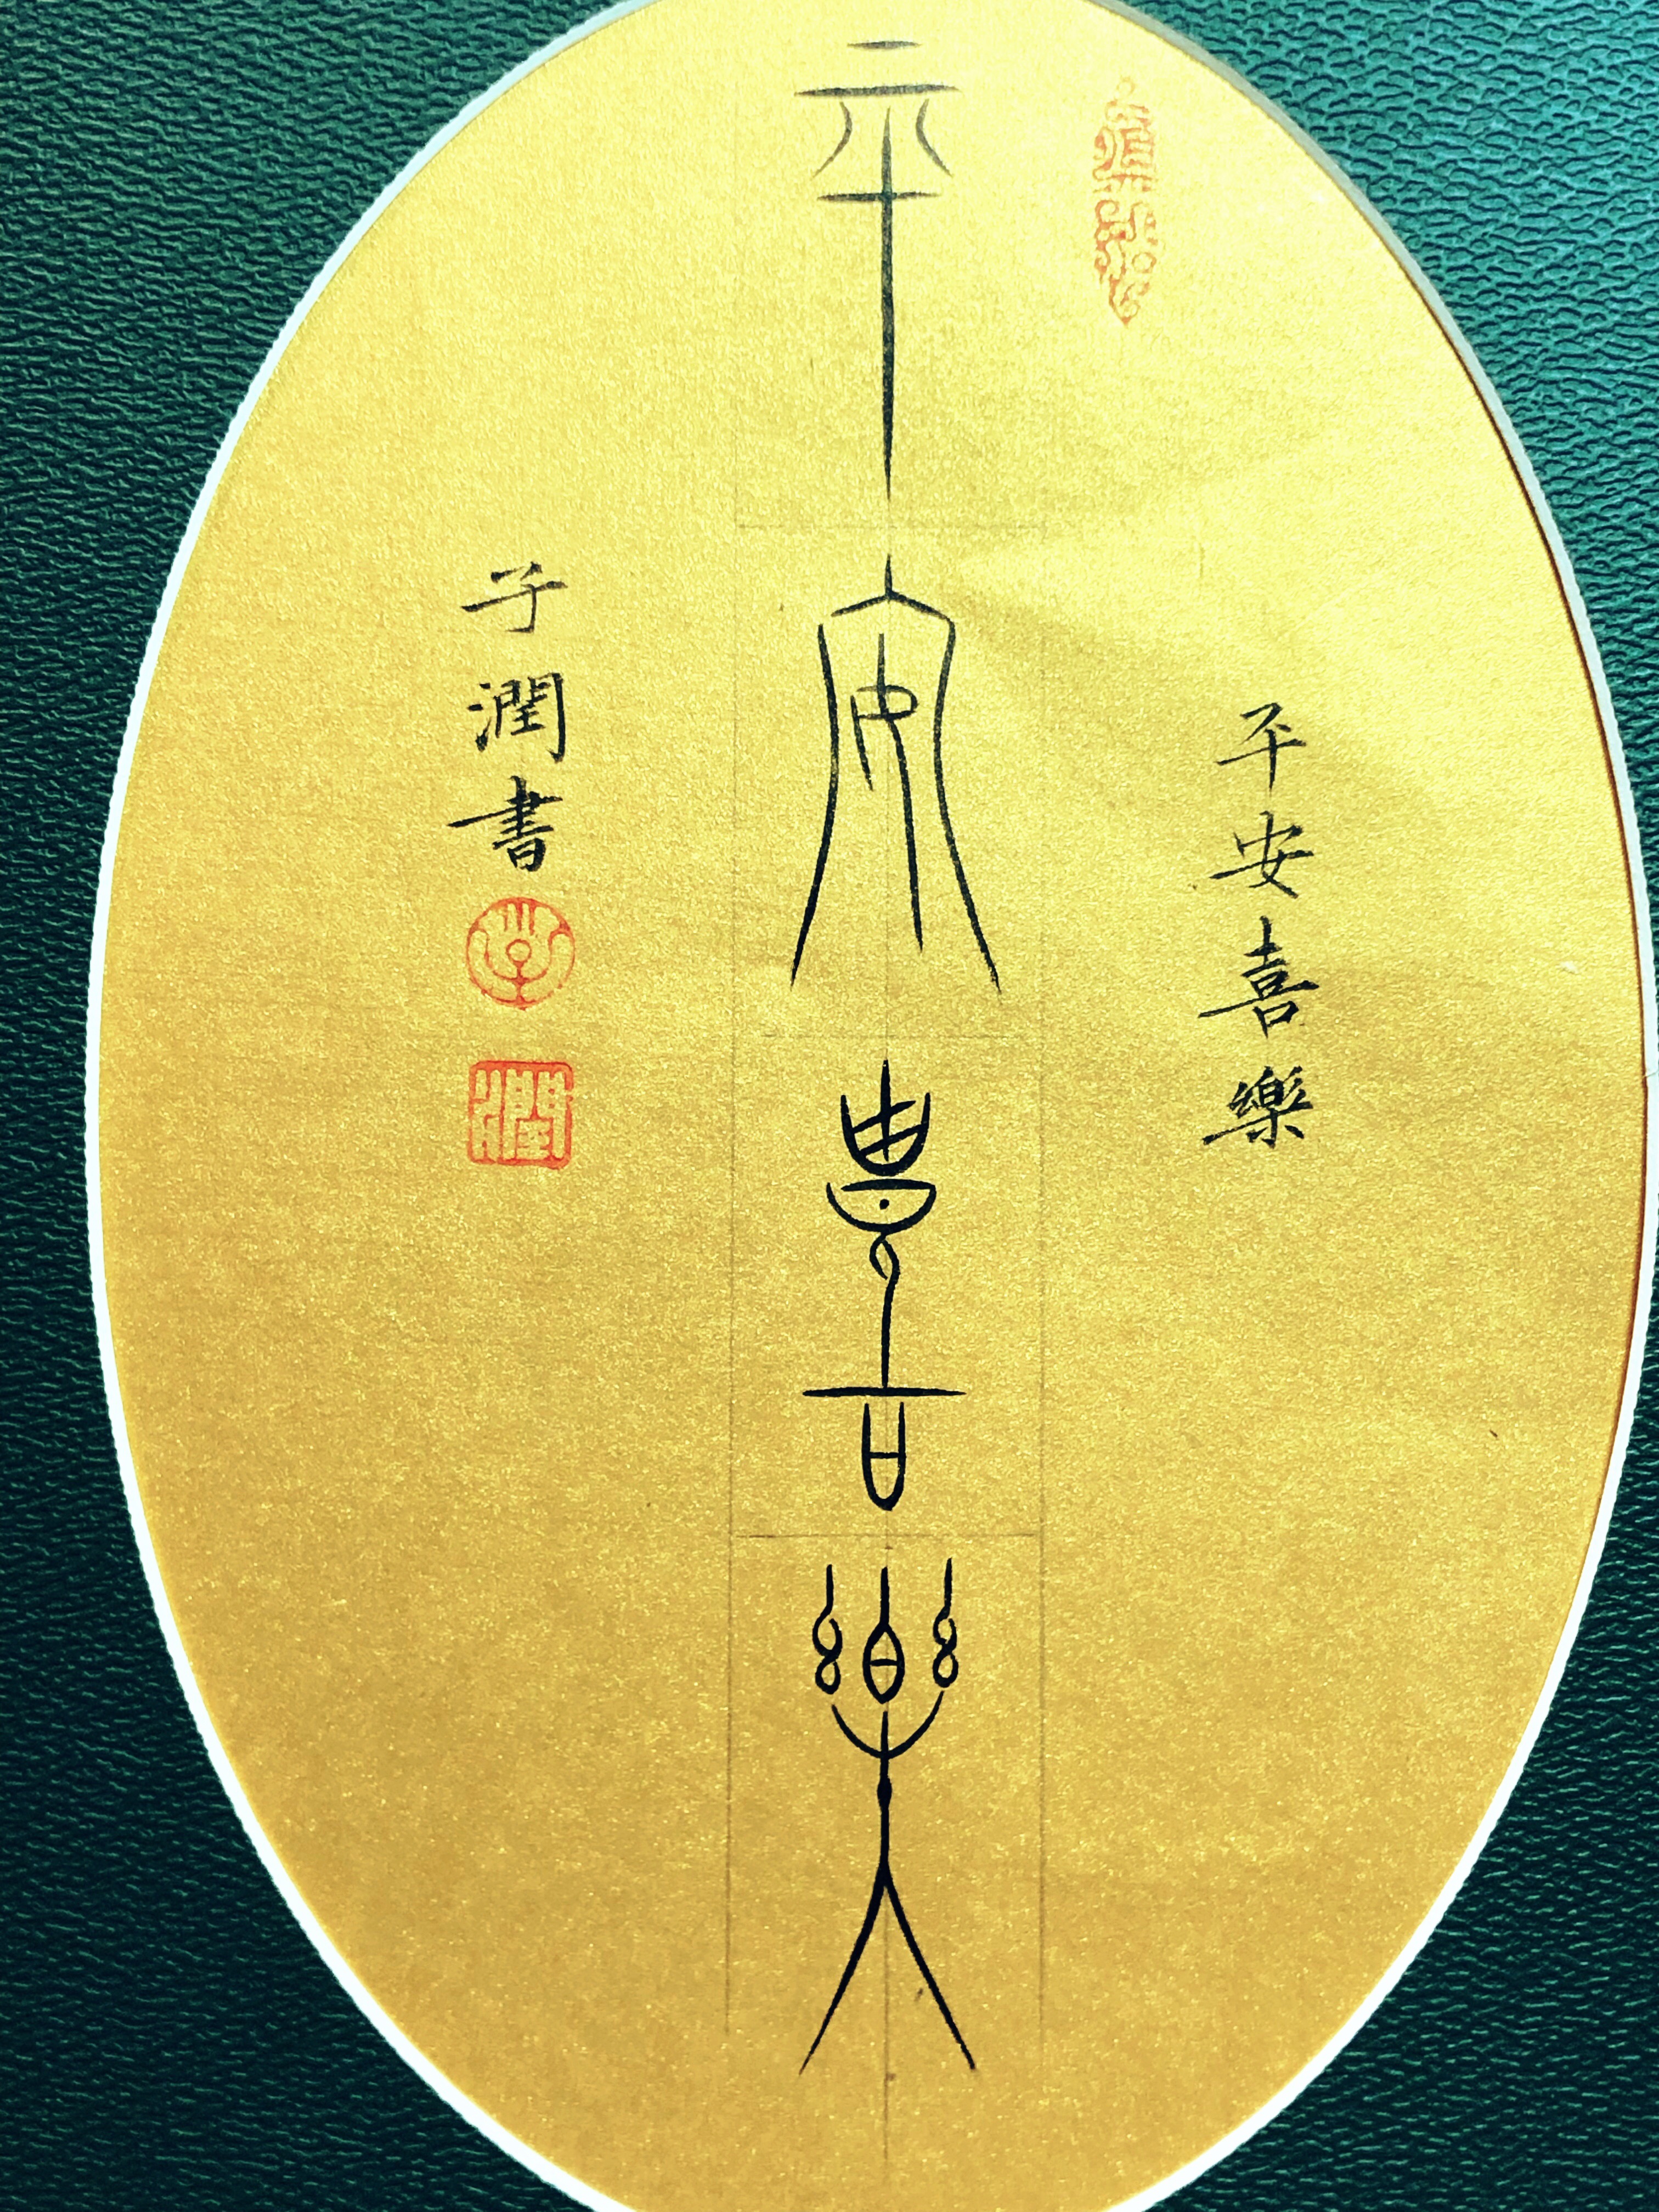 平安喜樂
平安喜樂
子潤書
潤